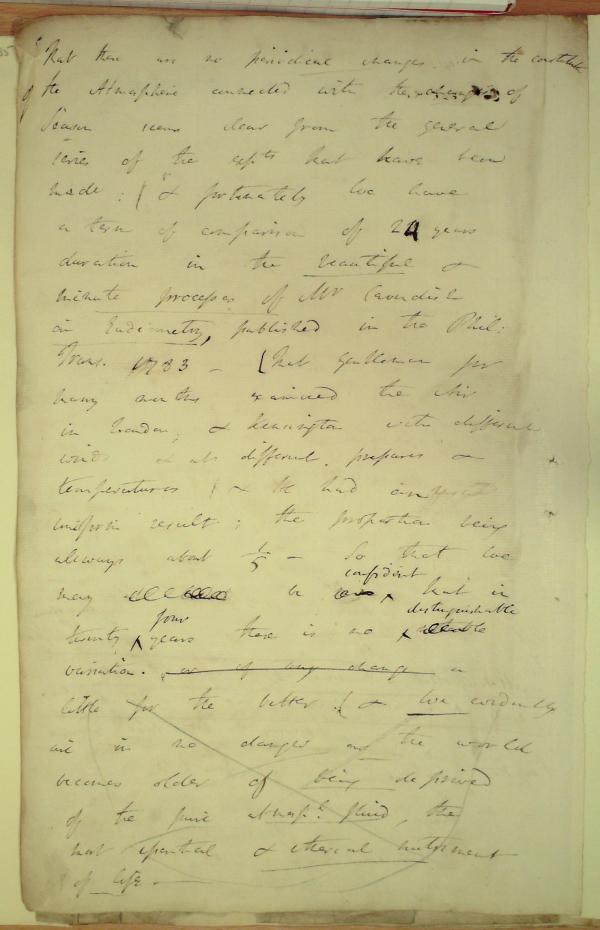 that there are no periodical changes in the constitution
of the Atmosphere connected with the changes of
Season seems clear from the general
series of the expts that have been
made: ( & fortunately we have
a term of comparison of 24 years
duration in the beautiful &
minute processes of Mr Cavendish
in Eudiometry, published in the Phil:
Trans. 1783 - (that gentleman for
many months examined the Air
in London, & Kensington with different
winds & at different pressures &
temperatures ( & He had an
uniform result; the proportion being
allways about 1/5 - So that we
confident
may be that in
four distinguishable
twenty years there is no
variation. or of any change a
little for the better. ( & we evidently
are in no danger as the world
becomes older of being deprived
of the pure atmosp.l fluid, the
most essential & etherial nutriment
of life.-